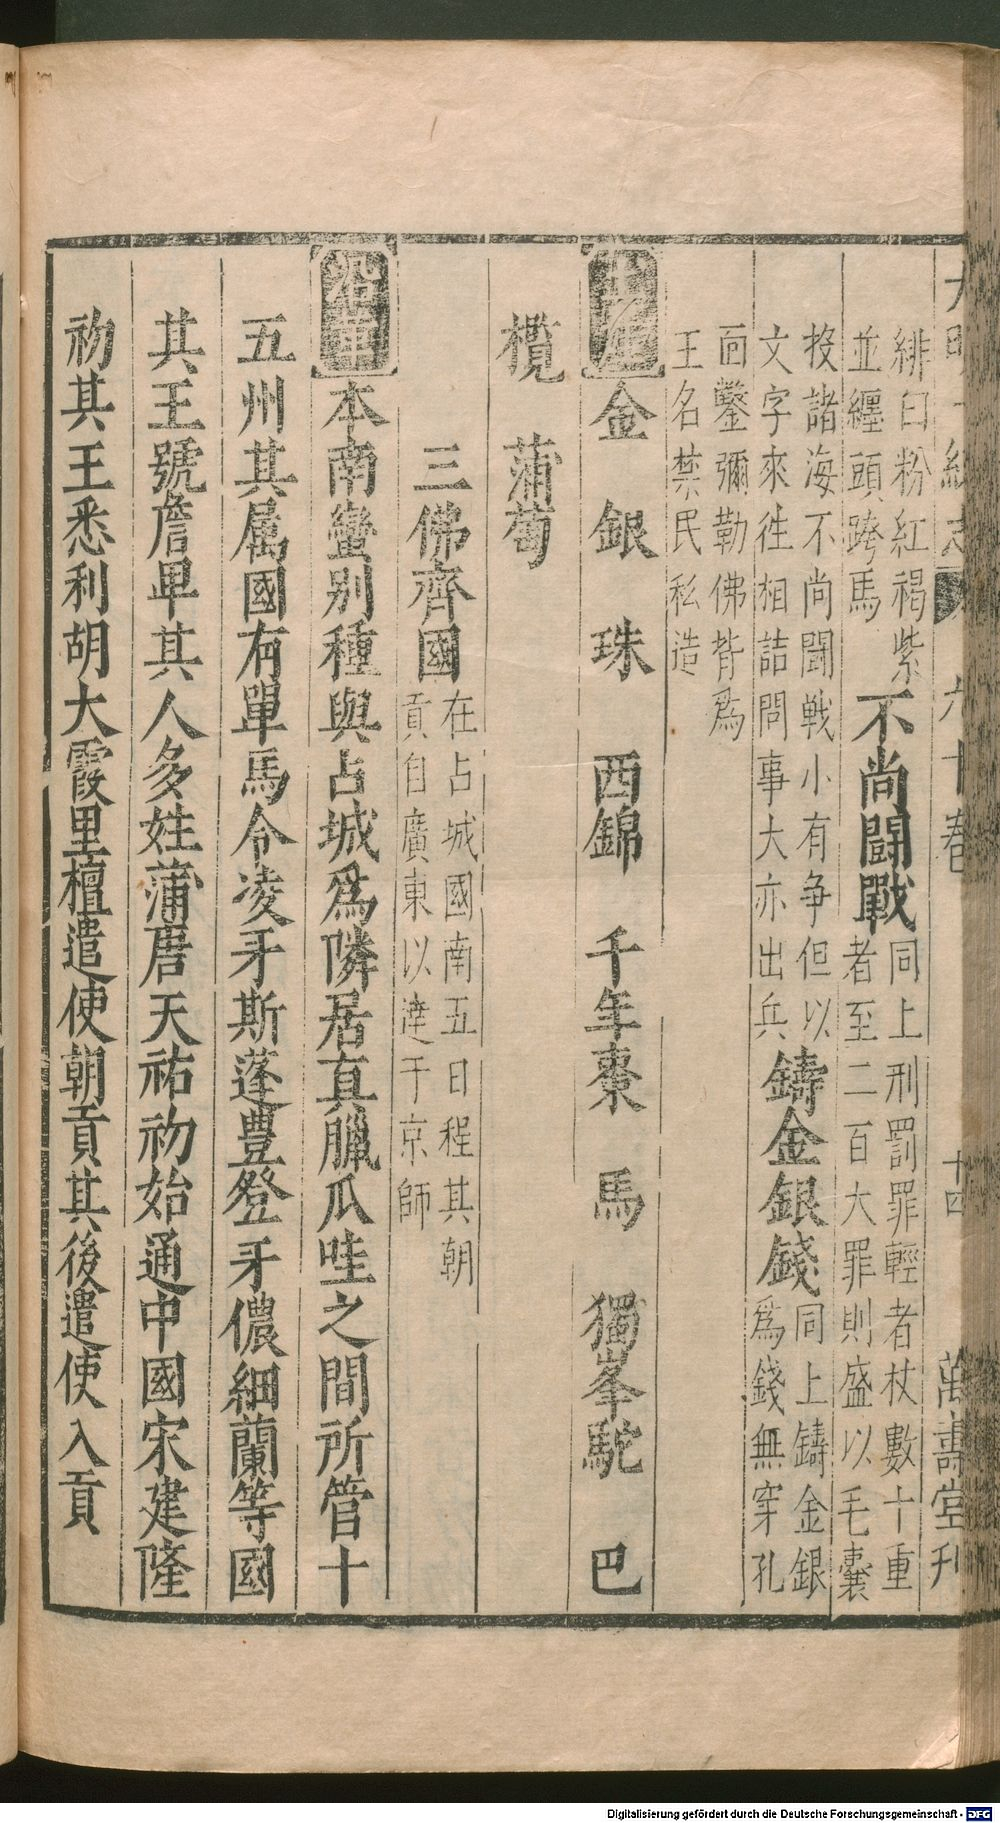 大明一統志 九十卷 十四 萬壽堂刋
緋白粉紅褐紫
並纏頭跨馬
不尚鬪戰
同上刑罰罪輕者杖數十重
者至二百大罪則盛以毛囊
投諸海不尚鬪戦小有争但以
文字來徃相詰問事大亦出兵
鑄金銀錢
同上鑄金銀
爲錢無穿孔
面鑿彌勒佛背爲
王名禁民私造
土産金 銀 珠 西錦 千年棗 馬 獨峯駝 巴
欖 蒲萄
三佛齊國
在占城國南五日程其朝
貢自廣東以達于京師
沿革本南蠻别種與占城爲隣居真臘瓜哇之間所管十
五州其属國有單馬令凌牙斯蓬豊登牙儂細蘭等國
其王號詹卑其人多姓蒲唐天祐初始通中國宋建隆
初其王悉利胡大霞里檀遣使朝貢其後遣使入貢
Digitalisierung gefördert durch die Deutsche Forschungsgemeinschaft - DFG